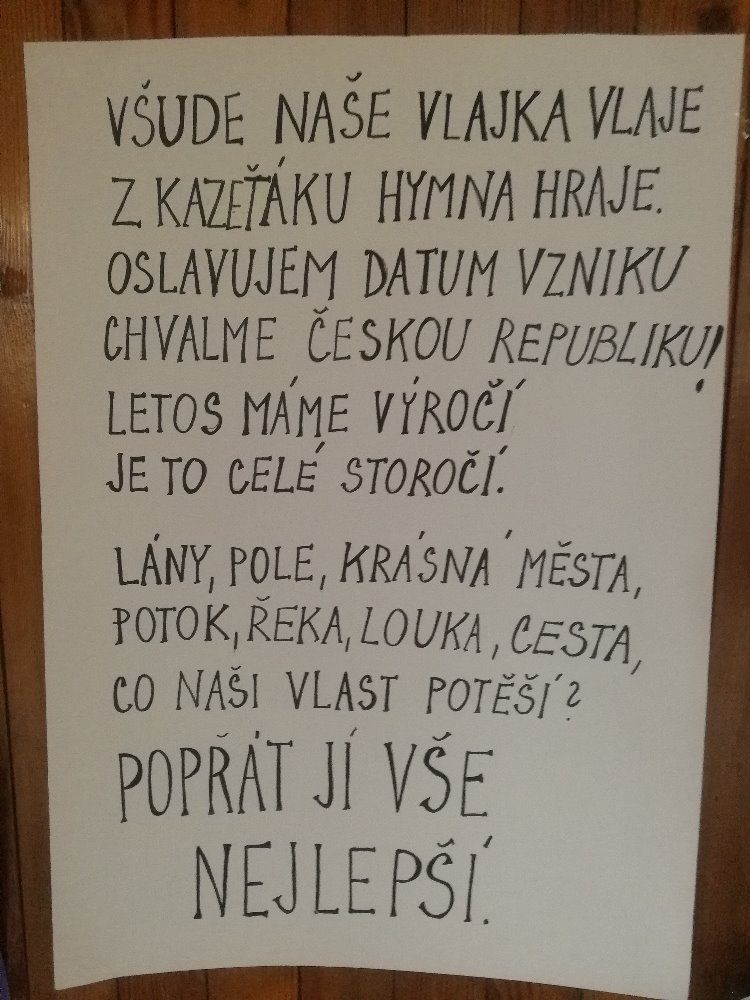 VŠUDE NAŠE VLAJKA VLAJE
Z KAZEŤÁKU HYMNA HRAJE.
OSLAVUJEM DATUM VZNIKU
CHVALME ČESKOU REPUBLIKU!
LETOS MÁME VÝROČÍ
JE TO CELÉ STOROČÍ.
LÁNY, POLE, KRÁSNÁ MĚSTA,
POTOK, ŘEKA, LOUKA, CESTA,
CO NAŠI VLAST POTĚŠÍ?
POPŘÁT JÍ VŠE
NEJLEPŠÍ.